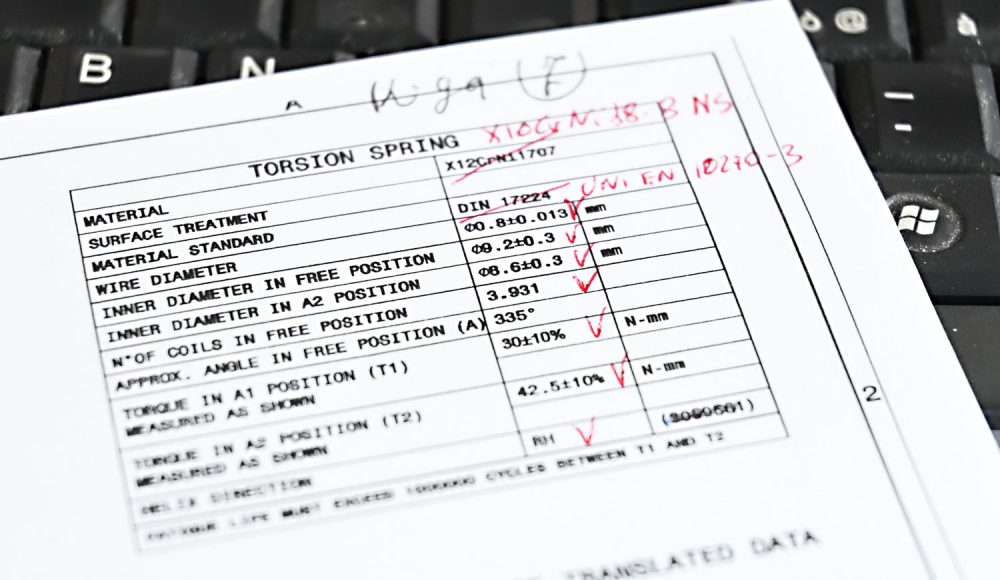 B N @
A
TORSION SPRING X10CrNi 18-8 NS
MATERIAL X12CrNi1707
SURFACE TREATMENT
MATERIAL STANDARD DIN 17224 UNI EN 10270-3
WIRE DIAMETER Φ0.8±0.013 mm
INNER DIAMETER IN FREE POSITION Φ9.2±0.3 mm
INNER DIAMETER IN A2 POSITION Φ8.6±0.3 mm
N°OF COILS IN FREE POSITION 3.931
APPROX. ANGLE IN FREE POSITION (A) 335°
TORQUE IN A1 POSITION (T1) 30±10% N-mm
MEASURED AS SHOWN
TORQUE IN A2 POSITION (T2) 42.5±10% N-mm
MEASURED AS SHOWN
HELIX DIRECTION RH (3099501)
FATIGUE LIFE MUST EXCEED 1000000 CYCLES BETWEEN T1 AND T2
2
TRANSLATED DATA